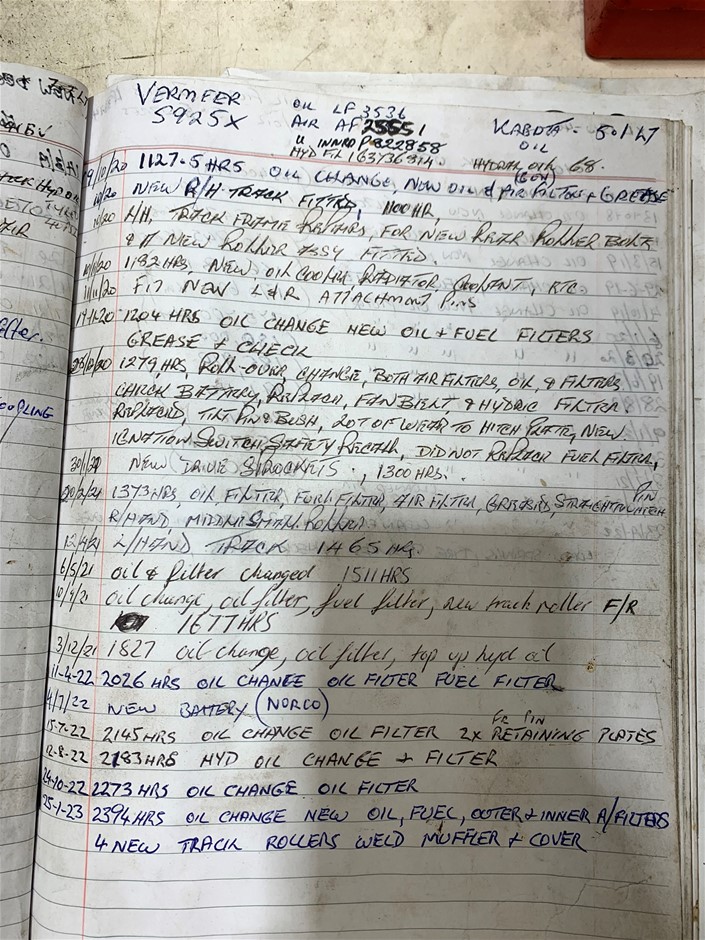 VERMEER
S925X
OIL LF 3536
AIR AF 25551
" INNER P822858
HYD FIL 163736314
KABOTA - 50/LT
OIL
HYDRAL OIL 68.
9/10/20 1127.5 HRS OIL CHANGE, NEW OIL & AIR FILTERS + GREASE
/10/20 NEW R/H TRACK FITTED, 1100 HR,
/10/20 H/H, TRACK FRAME REPAIRS, FOR NEW REAR ROLLER BOLTS
& NEW ROLLER ASSY FITTED.
1182 HRS, NEW OIL COOLER RADIATOR COOLANT, ETC
11/11/20 FIT NEW L&R ATTACHMENT PINS
17-11-20 1204 HRS OIL CHANGE NEW OIL + FUEL FILTERS
GREASE + CHECK
28/12/20 1279 HRS, ROLL-OVER, CHANGE, BOTH AIR FILTERS, OIL & FILTERS,
CHECK BATTERY, REPLACE, FAN BELT, & HYDRIC FILTER.
REPLACED, TILT PIN & BUSH, 20T OF WEAR TO HITCH PLATE, NEW.
IGNATION SWITCH, SAFETY RECALL, DID NOT REPLACE FUEL FILTER,
30/1/21 NEW DRIVE SPROCKETS., 1300 HRS.
20/2/21 1373 HRS, OIL FILTER, FUEL FILTER, AIR FILTER, GREASED, STRAIGHTEN HITCH PIN
R/HAND MIDDLE SMALL ROLLER
12/4/21 L/HAND TRACK 1465 HRS
6/5/21 oil & filter changed 1511 HRS
10/9/21 oil change, oil filter, fuel filter, new track roller F/R
1677 HRS
3/12/21 1827 oil change, oil filter, top up hyd oil
11-4-22 2026 HRS OIL CHANGE OIL FILTER FUEL FILTER
4/7/22 NEW BATTERY (NORCO)
15-7-22 2145 HRS OIL CHANGE OIL FILTER 2x FR PIN RETAINING PLATES
12-8-22 2183 HRS HYD OIL CHANGE + FILTER
24-10-22 2273 HRS OIL CHANGE OIL FILTER
25-1-23 2394 HRS OIL CHANGE NEW OIL, FUEL, OUTER + INNER A/FILTERS
4 NEW TRACK ROLLERS WELD MUFFLER + COVER